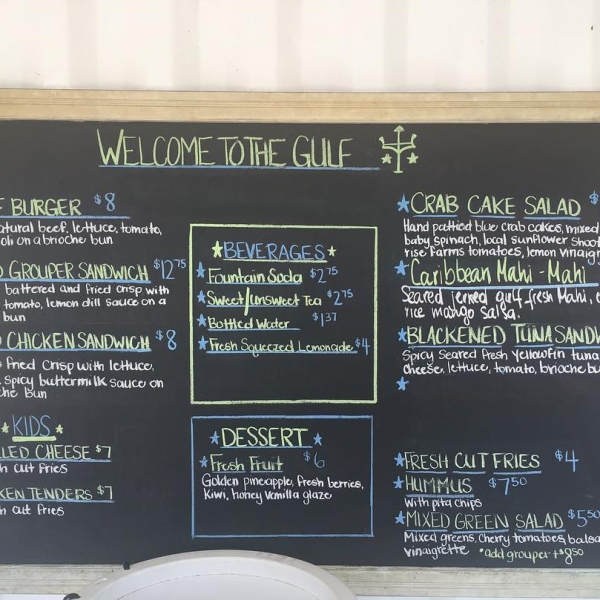 WELCOME TO THE GULF
F BURGER $8
atural beef, lettuce, tomato,
oli on a brioche bun
D GROUPER SANDWICH $12.75
battered and fried crisp with
tomato, lemon dill sauce on a
bun
D CHICKEN SANDWICH $8
fried crisp with lettuce,
spicy buttermilk sauce on
che bun
KIDS
LLED CHEESE $7
h cut fries
KEN TENDERS $7
h cut fries
BEVERAGES
Fountain Soda $2.75
Sweet/Unsweet Tea $2.75
Bottled Water $1.37
Fresh Squeezed Lemonade $4
DESSERT
Fresh Fruit $6
Golden pineapple, fresh berries,
Kiwi, honey vanilla glaze
CRAB CAKE SALAD $
Hand pattied blue crab cakes, mixed
baby spinach, local sunflower shoot
rise Farms tomatoes, lemon vinaigr
Caribbean Mahi-Mahi
Seared jerked gulf fresh Mahi, c
rice mango salsa.
BLACKENED TUNA SANDW
Spicy seared fresh yellowfin tuna
cheese, lettuce, tomato, brioche bu
FRESH CUT FRIES $4
HUMMUS $7.50
with pita chips
MIXED GREEN SALAD $5.50
Mixed greens, cherry tomatoes, balsa
vinaigrette *add grouper +$8.50